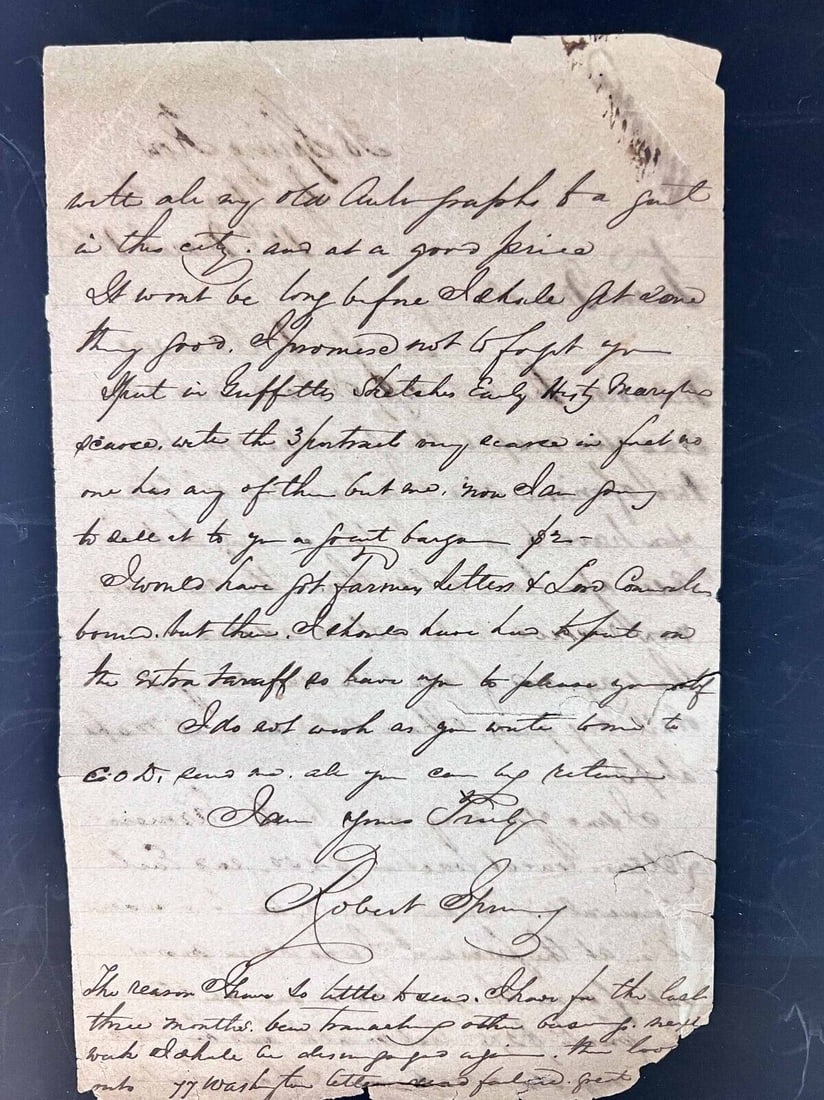 with all my old Autographs to a gent
in this city. and at a good price
It wont be long before I shall get some
thing good. I promise not to forget you
I put in Griffiths Sketches Early Histy Maryland
scarce. with the 3 portraits very scarce in fact no
one has any of them but me. now I am going
to sell it to you a great bargain $2-
I would have got Farmers Letters & Lord
bound. but then. I should have had to put on
the extra tariff so have you to please yourself
I do not wish as you write to me to
C.O.D. send me. all you can by return
I am yours Truly
Robert Spring
The reason I have so little to send. I have for the last
three months. been transacting other business. next
week I shall be disengaged again. then look
77 Washington letters failed. great